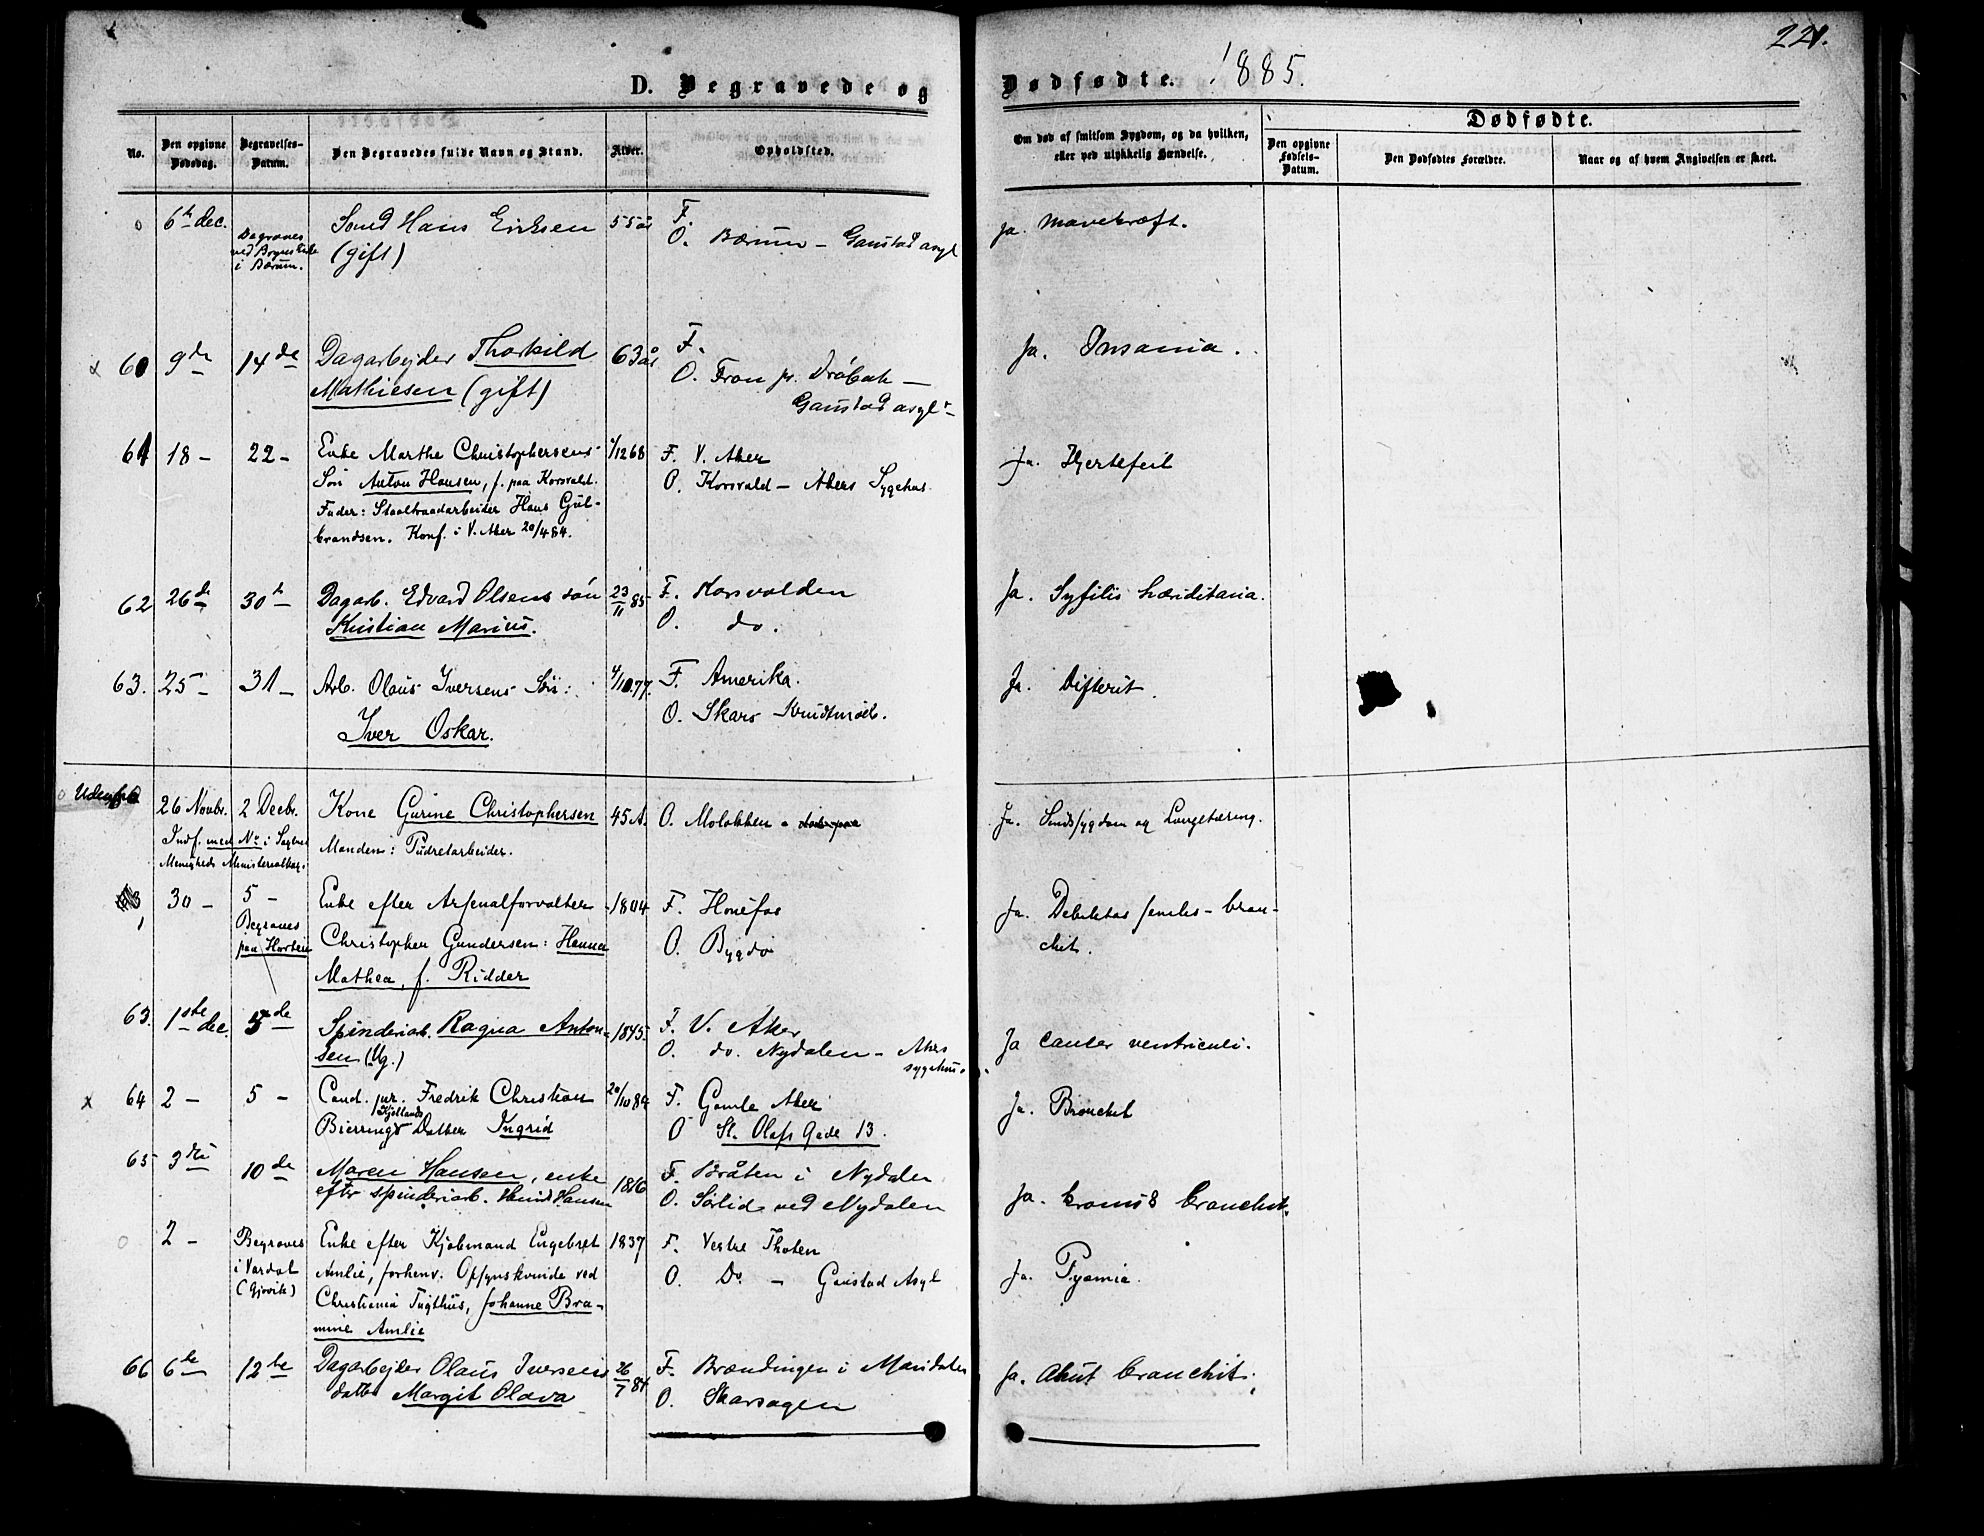 221.
D. Begravede og Dødfødte. 1885.
No.
Den opgivne Dødsdag.
Begravelses-Datum.
Den Begravedes fulde Navn og Stand.
Alder.
Opholdsted.
Om død af smitsom Sygdom, og da hvilken, eller ved ulykkelig Hændelse.
Dødfødte.
Den opgivne Fødsels-Datum.
Den Dødfødtes Forældre.
Naar og af hvem Angivelsen er skeet.
6te dec. Hans Eriksen 55 år F. Ja. Mavekræft.
Begraves (gift) O. Bærum - Gaustad asyl
i Bærum.
60 9de 14de Dagarbejder Thorkild 63 år F. Ja. Insania.
Mathiesen (gift) O. Fron pr. Drøbak —
Gaustad asyl
61 18 - 22 - Enke Marthe Christophersens 1/12 68 F. V. Aker Ja. Hjertefeil
Søn Anton Hansen, f. paa Korsvald. O. Korsvald - Akers Sygehus.
Fader: Staaltraadarbeider Hans Gul-
brandsen. Konf. i V. Aker 20/4 84.
62 26de 30te Dagarb. Edvard Olsens søn 23/11 85 F. Korsvolden Ja. Syfilis hæriditaria.
Kristian Marius. O. do.
63. 25 - 31 - Arb. Olaus Iversens Søn: 4/10 77. F. Amerika. Ja. Difterit.
Iver Oskar. O. Skars Krudtmølle.
26 Novbr. 2 Decbr. Kone Gurine Christophersen 45 A. O. Molokken Ja. Sindssygdom og Lungetæring.
Indf. med No i Sagene Manden: Pudretarbeider.
Menigheds Ministerialbog.
30 - 5 - Enke efter Arsenalforvalter 1804 F. Hønefos Ja. Debilitas senilis - bron-
Begraves Christopher Gundersen: Hanna O. Bygdø chit.
paa Horten Mathea, f. Ridder
63. 1ste dec. 5de Spinderiarb. Ragna Anton- 1845. F. V. Aker Ja cancer ventriculi.
sen (Ug.) O. do. Nydalen - Akers
sygehus.
64 2 - 5 - Cand. jur. Fredrik Christian 20/10 84 F. Gamle Aker Ja. Bronchit
Kjellands
Bierrings Datter Ingrid O St. Olafs Gade 13.
65 3die 10de Maren Hansen, enke 1816 F. Bråten i Nydalen Ja. kronisk bronchit.
efter spinderiarb. Hansen O. Sørlid ved Nydalen
2 - Begraves Enke efter Kjøbmand Engebret 1837 F. Vestre Thoten Ja. Pyæmie.
i Vardal Amlie, forhenv. Opsynskvinde ved O. Do. - Gaustad Asyl
(Gjøvik) Christiania Tugthus, Johanne Bra-
mine Amlie
66 6te 12te Dagarbejder Olaus Iversens 26/7 84 F. Brændingen i Maridalen Ja. Akut bronchit.
datter Margit Olava O. Skarsagen